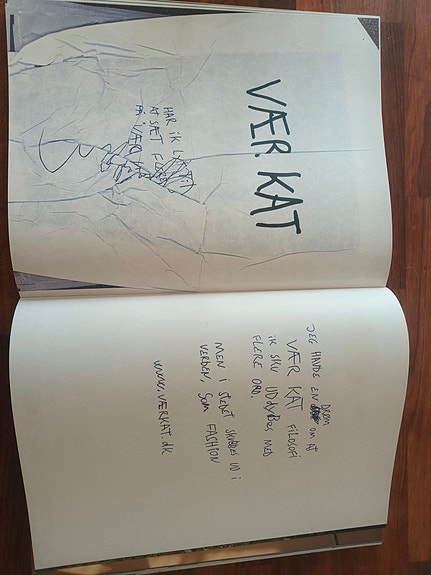 VÆR KAT
HAR iK
AT SÆT
PÅ VÆR
JEG HAVDE EN DRØM OM AT
VÆR KAT FILOSOFI
iK SKU UDdyBES MED
FLERE ORD.
MEN i STEDET SKUbbES UD i
VERDEN, SOM FASHION
www.VÆRKAT.dk